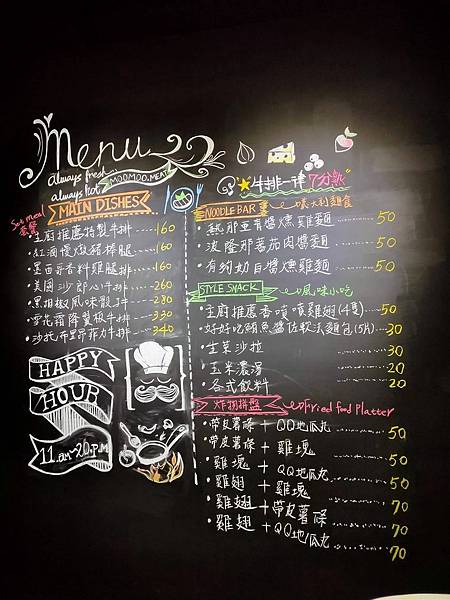 Menu
always fresh
always hot
MOOMOO.MEAT
Set meal
套餐
MAIN DISHES
・主廚推薦特製牛排-----160
・紅酒慢燉豬棒腿----160
・墨西哥香料雞腿排----160
・美國沙朗心牛排----260
・黑胡椒風味骰子牛----280
・雪花霜降翼板牛排----330
・沙托布里昂菲力牛排----340
HAPPY
HOUR
11.am~20.p.m
"★牛排一律7分熟"
NOODLE BAR 義大利麵食
・熱那亞青醬燻雞麵----50
・波隆那蕃茄肉醬麵----50
・有夠奶白醬燻雞麵----50
STYLE SNACK 風味小吃
・主廚推薦香噴噴雞翅(4隻)---50
・好好吃鮪魚醬佐軟法麵包(5片)---30
・生菜沙拉 30
・玉米濃湯 20
・各式飲料 20
炸物拼盤 Fried food Platter
・帶皮薯條 + QQ地瓜丸 50
・帶皮薯條 + 雞塊 50
・雞塊 + QQ地瓜丸 50
・雞翅 + 雞塊 70
・雞翅 + 帶皮薯條 70
・雞翅 + QQ地瓜丸 70